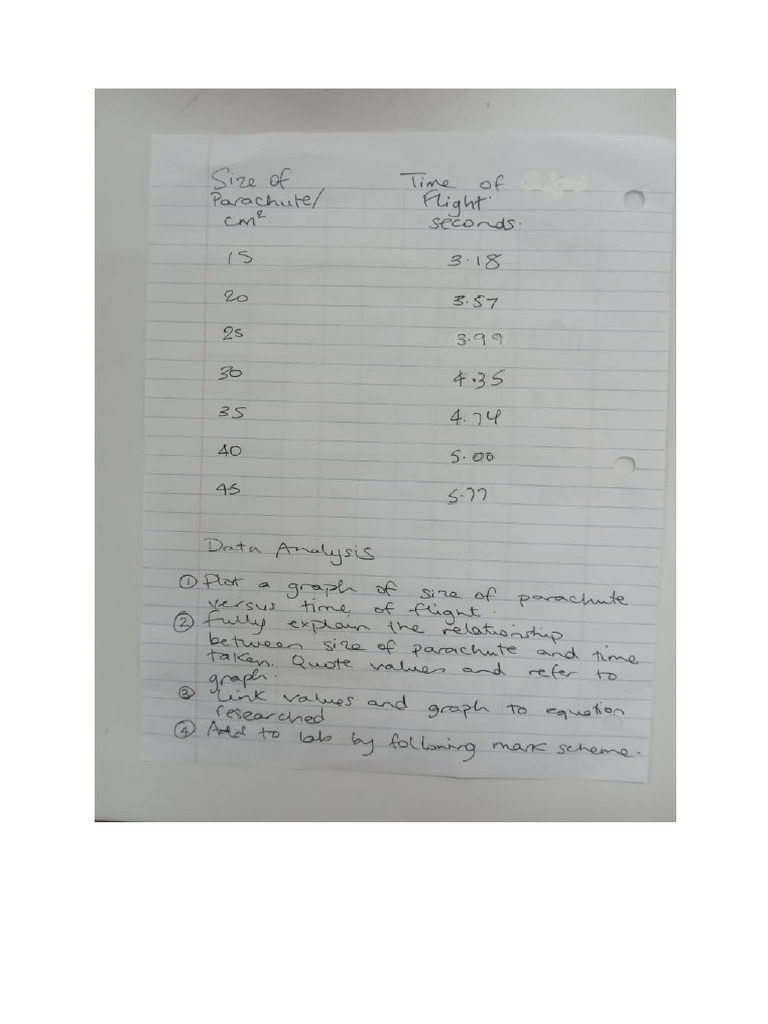 Size of Time of
Parachute/ Flight
cm² seconds.
15 3.18
20 3.57
25 3.99
30 4.35
35 4.74
40 5.00
45 5.77
Data Analysis
① Plot a graph of size of parachute
versus time of flight.
② Fully explain the relationship
between size of parachute and time
taken. Quote values and refer to
graph.
③ Link values and graph to equation
researched
④ Add to lab by following mark scheme.